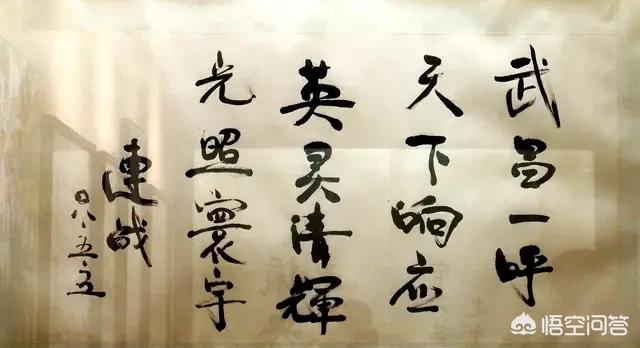 武昌一呼
天下响应
英灵清輝
光照寰宇
連战
八·五·五
悟空问答